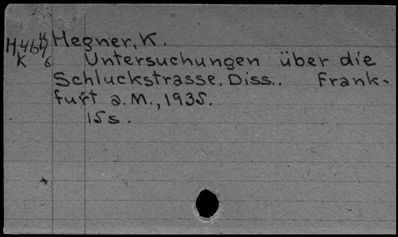 Hegner, K.
Untersuchungen über die
Schluckstrasse. Diss.. Frank-
furt a.M., 1935.
15s.